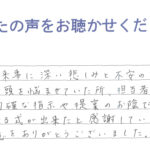 たの声をお聴かせくだ
来事に深い悲しみと不安の
頭を悩ませていた所、担当者
確な指示や提案のお陰で
る式が出来たと感謝してい
ありがとうございました。